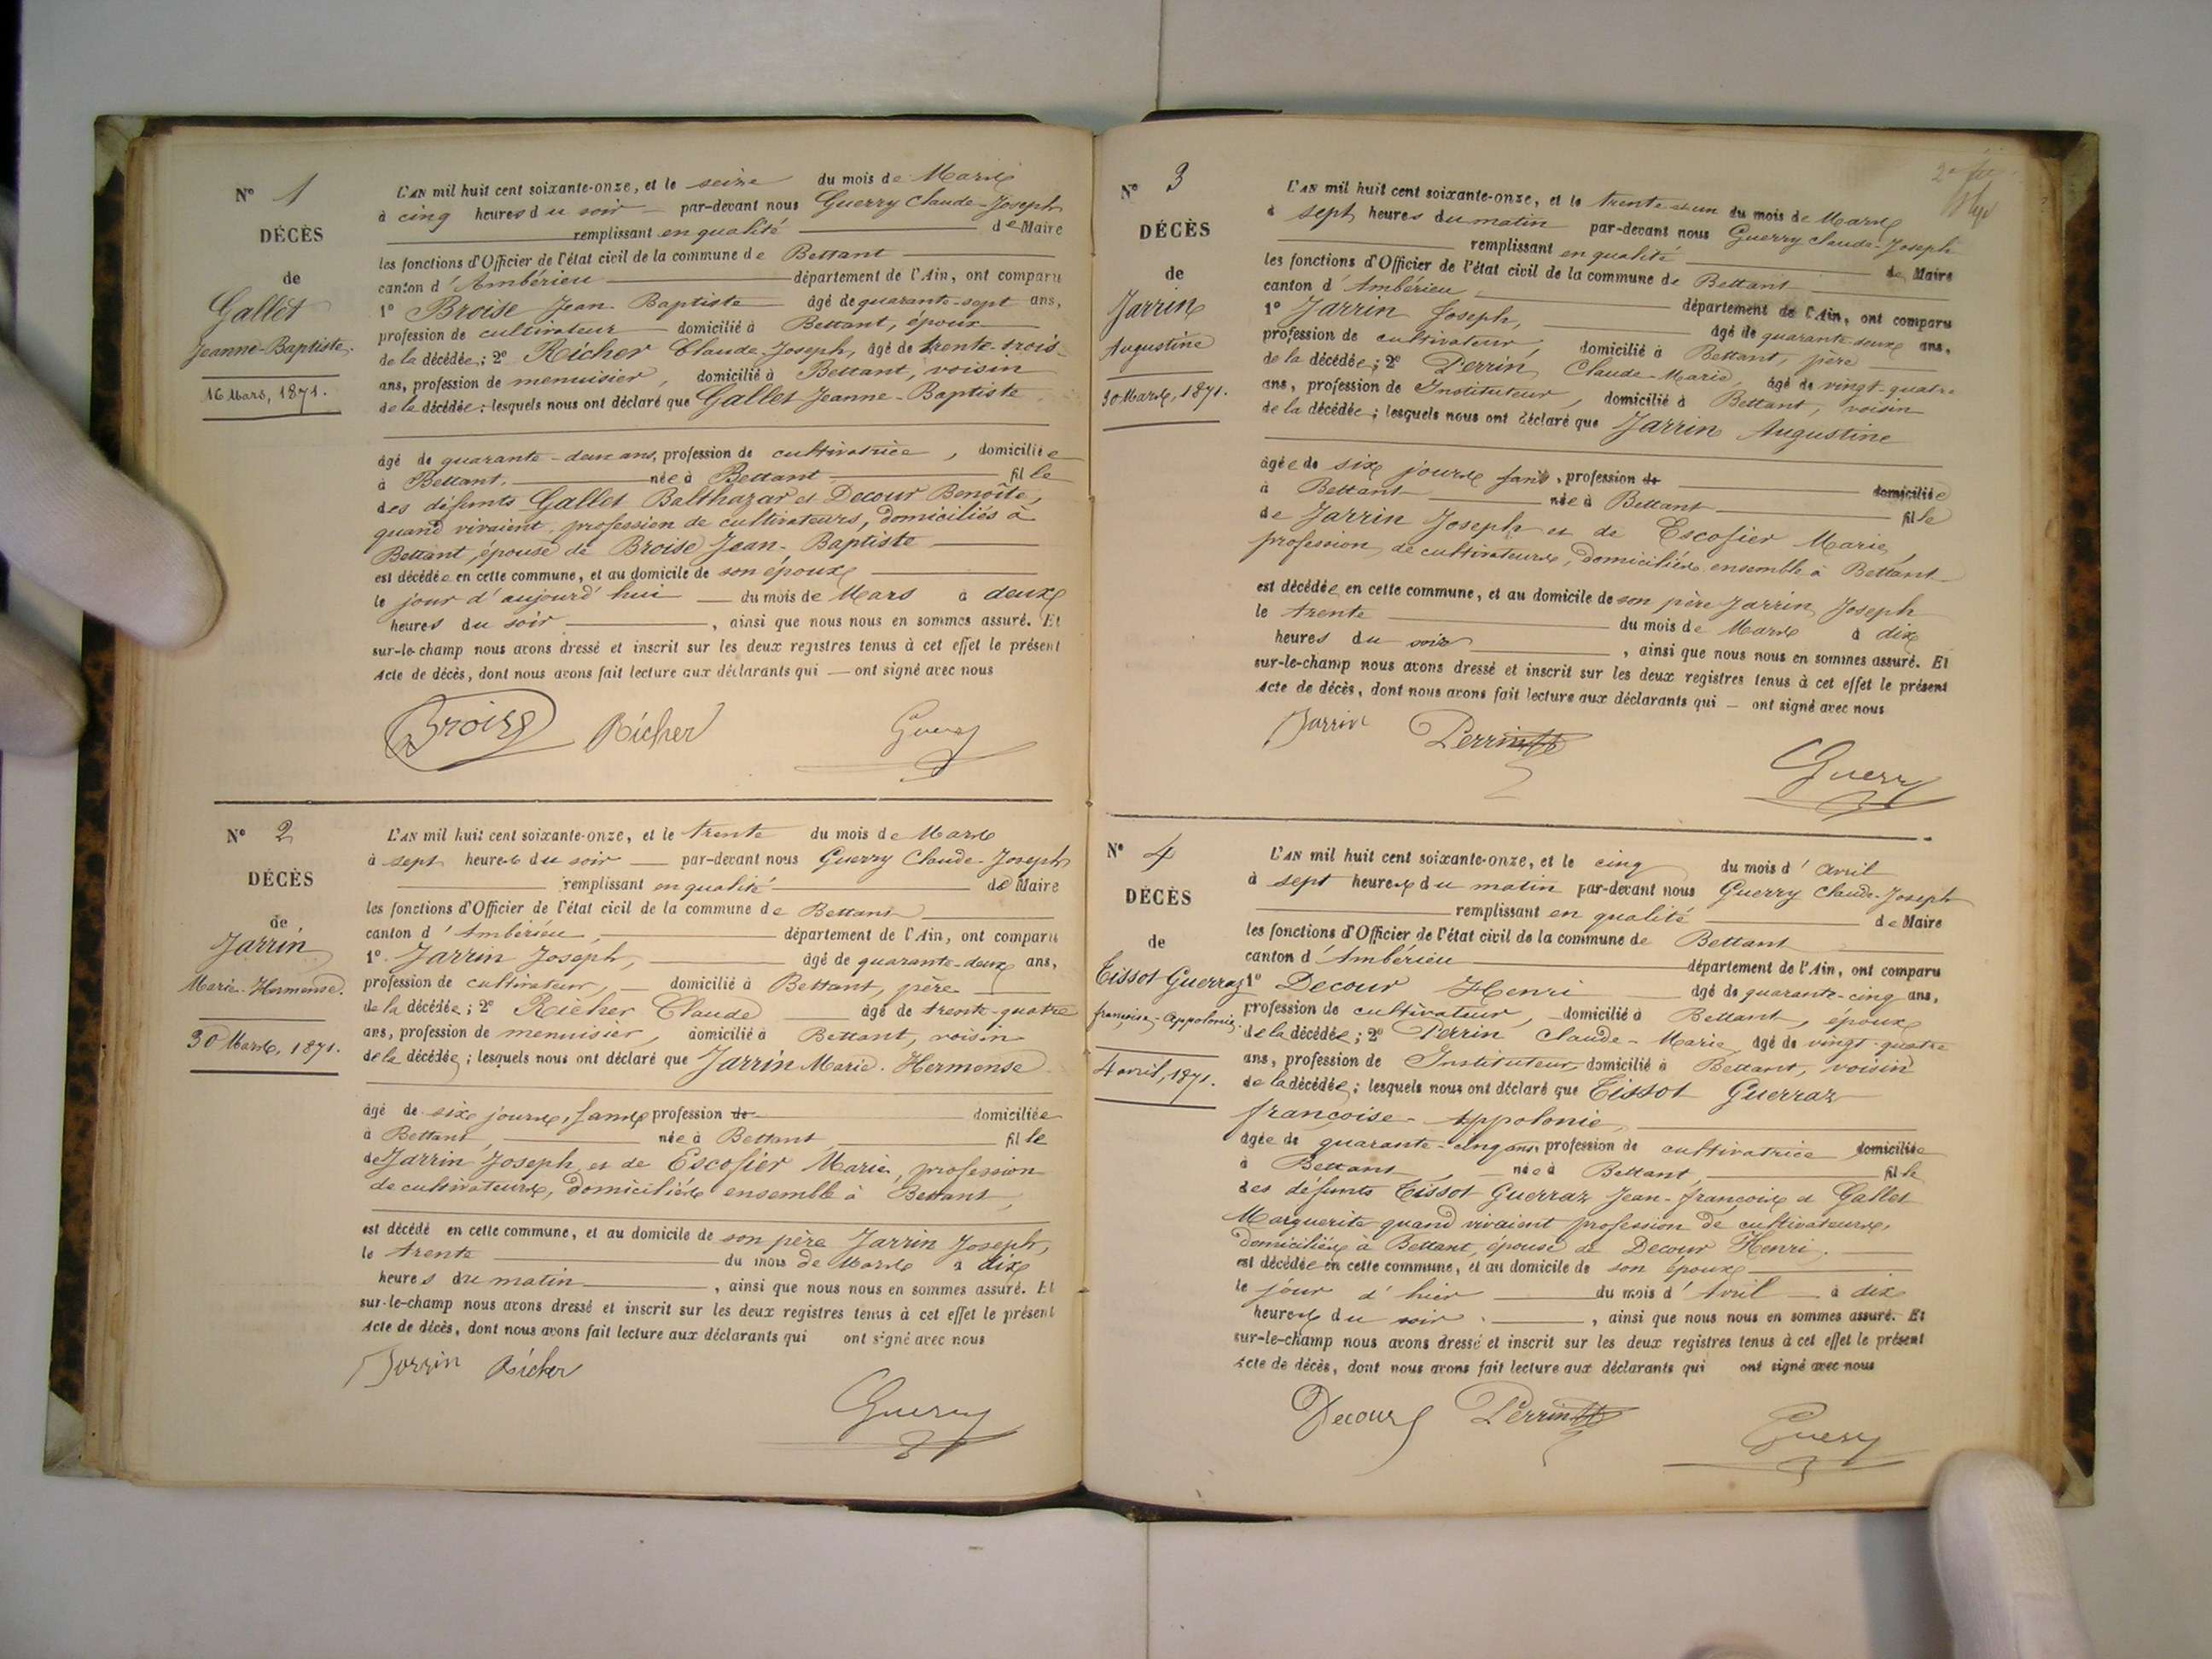 N° 1
DÉCÈS
de
Gallet
Jeanne-Baptiste.
16 Mars, 1871.
L'AN mil huit cent soixante-onze, et le seize du mois de Mars
à cinq heures du soir par-devant nous Guerry Claude-Joseph
remplissant en qualité de Maire
les fonctions d'Officier de l'état civil de la commune de Bettant
canton d'Ambérieu département de l'Ain, ont comparu
1° Broise Jean Baptiste âgé de quarante-sept ans,
profession de cultivateur domicilié à Bettant, époux
de la décédée; 2° Richer Claude-Joseph, âgé de trente-trois
ans, profession de menuisier, domicilié à Bettant, voisin
de la décédée: lesquels nous ont déclaré que Gallet Jeanne-Baptiste
âgé de quarante-deux ans, profession de cultivatrice, domiciliée
à Bettant, née à Bettant fille
des défunts Gallet Balthazar et Decour Benoîte,
quand vivaient profession de cultivateurs, domiciliés à
Bettant, épouse de Broise Jean-Baptiste
est décédée en cette commune, et au domicile de son époux
le jour d'aujourd'hui du mois de Mars à deux
heures du soir, ainsi que nous nous en sommes assuré. Et
sur-le-champ nous avons dressé et inscrit sur les deux registres tenus à cet effet le présent
Acte de décès, dont nous avons fait lecture aux déclarants qui ont signé avec nous
Broise Richer Guerry
N° 2
DÉCÈS
de
Jarrin
Marie-Hermense.
30 Mars, 1871.
L'AN mil huit cent soixante-onze, et le trente du mois de Mars
à sept heures du soir par-devant nous Guerry Claude-Joseph
remplissant en qualité de Maire
les fonctions d'Officier de l'état civil de la commune de Bettant
canton d'Ambérieu, département de l'Ain, ont comparu
1° Jarrin Joseph, âgé de quarante-deux ans,
profession de cultivateur, domicilié à Bettant, père
de la décédée; 2° Richer Claude âgé de trente-quatre
ans, profession de menuisier, domicilié à Bettant, voisin
de la décédée; lesquels nous ont déclaré que Jarrin Marie-Hermense
âgé de six jours, sans profession de domiciliée
à Bettant, née à Bettant fille
de Jarrin Joseph et de Escofier Marie, profession
de cultivateurs, domiciliés ensemble à Bettant,
est décédé en cette commune, et au domicile de son père Jarrin Joseph,
le trente du mois de Mars à dix
heures du matin, ainsi que nous nous en sommes assuré. Et
sur-le-champ nous avons dressé et inscrit sur les deux registres tenus à cet effet le présent
Acte de décès, dont nous avons fait lecture aux déclarants qui ont signé avec nous
Jarrin Richer
Guerry
N° 3
DÉCÈS
de
Jarrin
Augustine
30 Mars, 1871.
L'AN mil huit cent soixante-onze, et le trente et un du mois de Mars
à sept heures du matin par-devant nous Guerry Claude-Joseph
remplissant en qualité de Maire
les fonctions d'Officier de l'état civil de la commune de Bettant
canton d'Ambérieu département de l'Ain, ont comparu
1° Jarrin Joseph, âgé de quarante deux ans,
profession de cultivateur, domicilié à Bettant, père
de la décédée; 2° Perrin Claude-Marie, âgé de vingt-quatre
ans, profession de Instituteur, domicilié à Bettant, voisin
de la décédée; lesquels nous ont déclaré que Jarrin Augustine
âgée de six jours sans, profession de domiciliée
à Bettant née à Bettant fille
de Jarrin Joseph et de Escofier Marie,
profession de cultivateurs, domiciliés ensemble à Bettant
est décédée en cette commune, et au domicile de son père Jarrin Joseph
le trente du mois de Mars à dix
heures du soir, ainsi que nous nous en sommes assuré. Et
sur-le-champ nous avons dressé et inscrit sur les deux registres tenus à cet effet le présent
Acte de décès, dont nous avons fait lecture aux déclarants qui ont signé avec nous
Jarrin Perrin
Guerry
N° 4
DÉCÈS
de
Tissot Guerraz
françoise-Appolonie.
4 avril, 1871.
L'AN mil huit cent soixante-onze, et le cinq du mois d'avril
à sept heures du matin par-devant nous Guerry Claude-Joseph
remplissant en qualité de Maire
les fonctions d'Officier de l'état civil de la commune de Bettant
canton d'Ambérieu département de l'Ain, ont comparu
1° Decour Henri âgé de quarante-cinq ans,
profession de cultivateur, domicilié à Bettant, époux
de la décédée; 2° Perrin Claude-Marie, âgé de vingt-quatre
ans, profession de Instituteur, domicilié à Bettant, voisin
de la décédée; lesquels nous ont déclaré que Tissot Guerraz
françoise-Appolonie,
âgée de quarante-cinq ans, profession de cultivatrice domiciliée
à Bettant, née à Bettant, fille
des défunts Tissot Guerraz Jean-françois et Gallet
Marguerite quand vivaient profession de cultivateurs,
domiciliés à Bettant, épouse de Decour Henri.
est décédée en cette commune, et au domicile de son époux
le jour d'hier du mois d'Avril à dix
heures du soir, ainsi que nous nous en sommes assuré. Et
sur-le-champ nous avons dressé et inscrit sur les deux registres tenus à cet effet le présent
Acte de décès, dont nous avons fait lecture aux déclarants qui ont signé avec nous
Decour Perrin
Guerry